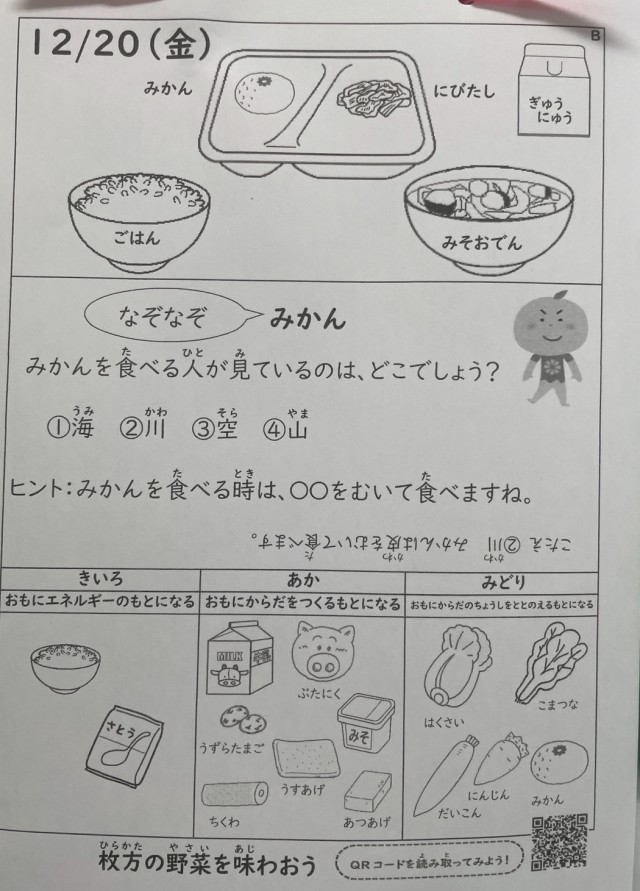 12/20(金)
B
みかん
にびたし
ぎゅう
にゅう
ごはん
みそおでん
なぞなぞ みかん
みかんを食べる人が見ているのは、どこでしょう?
た ひと み
①海 ②川 ③空 ④山
うみ かわ そら やま
ヒント:みかんを食べる時は、〇〇をむいて食べますね。
た とき た
こたえ ②川 みかんは皮をむいて食べます。
かわ かわ た
きいろ
おもにエネルギーのもとになる
さとう
あか
おもにからだをつくるもとになる
MILK
ぶたにく
うずらたまご
みそ
うすあげ
ちくわ
あつあげ
みどり
おもにからだのちょうしをととのえるもとになる
はくさい
こまつな
だいこん
にんじん
みかん
枚方の野菜を味わおう
ひらかた やさい あじ
QRコードを読み取ってみよう!
よ と